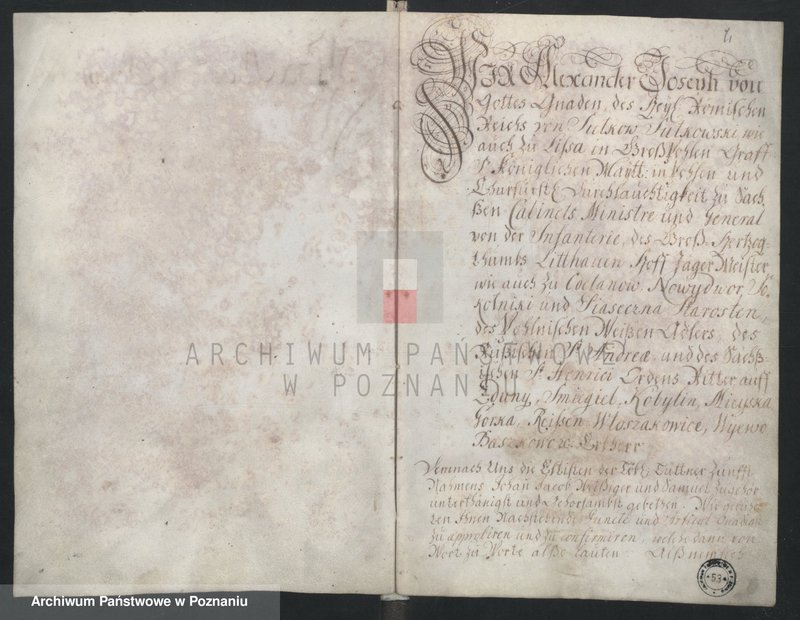 1,
WIR Alexander Joseph von
Gottes Gnaden, des Heyl. Römischen
Reichs von Sulkow Sulkowski wie
auch zu Lissa in Groß Pohlen Graff
Sr. Königlichen Maytt: in Pohlen und
Churfürstl: Durchlauchtigkeit zu Sach
ßen Cabinets Ministre und General
von der Infanterie, des Groß Hertzog
thumbs Litthauen Hoff Jäger Meister
wie auch zu Nowydwor, So,
kolniki und Piaseczna Starosten,
des Pohlnischen Weißen Adlers, des
Rußischen St. Andreæ und des Sächß
ischen St. Henrici Ordens Ritter auff
Smiegiel, Kobylin, Mieyska
Gorka, Reißen Wloszakowice, Wijewo
Baszkow Erbherr
Demnach Uns die Eltisten der Löbl: Zunfft
Nahmens Johañ Jacob und Samuel
unterthänigst und gehorsambst gebethen. Wir geruhe
ten Ihnen Nachstehende und Articul Gnädigst
zu approbiren und zu confirmiren, welche dann von
Wort zu Worte alßo lauten. Alß nemlich
ARCHIWUM PAŃSTWOWE
W POZNANIU
53
Archiwum Państwowe w Poznaniu